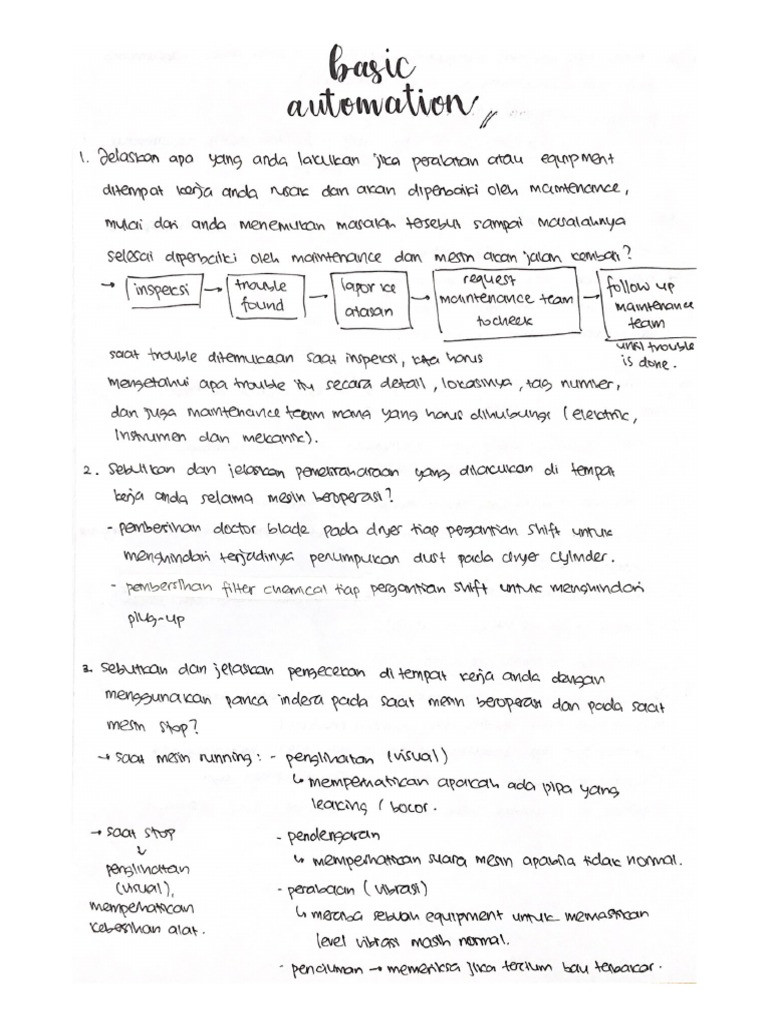 basic
automation
1. Jelaskan apa yang anda lakukan jika peralatan atau equipment
ditempat kerja anda rusak dan akan diperbaiki oleh maintenance,
mulai dari anda menemukan masalah tersebut sampai masalahnya
selesai diperbaiki oleh maintenance dan mesin akan jalan kembali?
→ inspeksi → trouble found → lapor ke atasan → request maintenance team to check → follow up maintenance team
until trouble
is done.
saat trouble ditemukaan saat inspeksi, kita harus
mengetahui apa trouble itu secara detail, lokasinya, tag number,
dan juga maintenance team mana yang harus dihubungi (elektrik,
Instrumen dan mekanik).
2. Sebutkan dan jelaskan pemeliraharaan yang dilakukan di tempat
kerja anda selama mesin beroperasi?
- pembersihan doctor blade pada dryer tiap pergantian shift untuk
menghindari terjadinya penumpukan dust pada dryer cylinder.
- pembersihan filter chemical tiap pergantian shift untuk menghindari
plug-up
3. Sebutkan dan jelaskan pengecekan di tempat kerja anda dengan
menggunakan panca indera pada saat mesin beroperasi dan pada saat
mesin stop?
→ saat mesin running : - penglihatan (visual)
↳ memperhatikan apakah ada pipa yang
leaking / bocor.
- pendengaran
↳ memperhatikan suara mesin apabila tidak normal.
- perabaan (vibrasi)
↳ meraba sebuah equipment untuk memastikan
level vibrasi masih normal.
- penciuman → memeriksa jika tercium bau terbakar.
→ saat stop
↓
penglihatan
(visual),
memperhatikan
kebersihan alat.